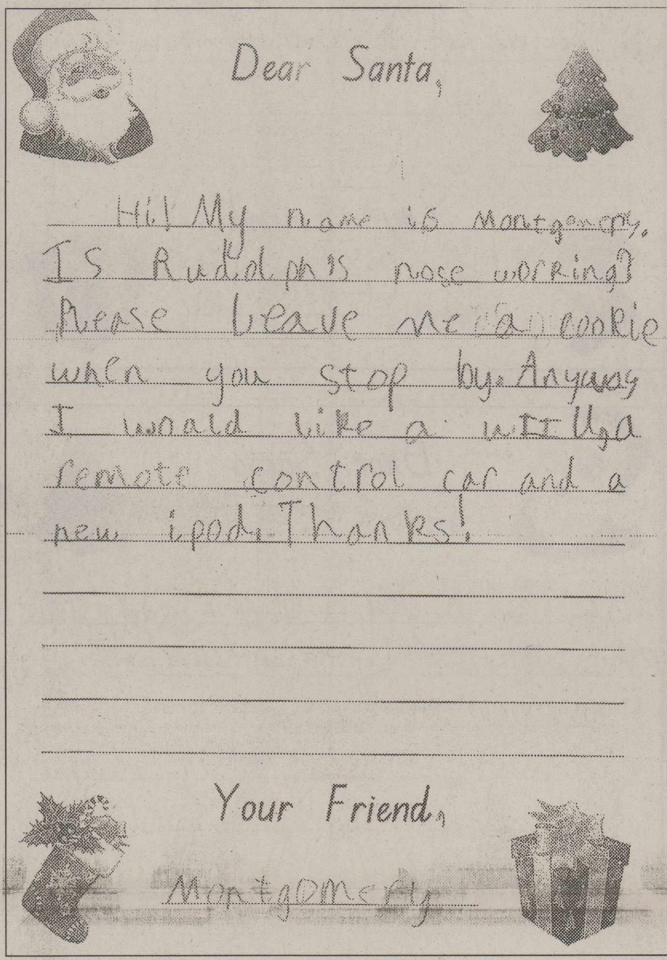 Dear Santa,
Hi! My name is Montgomery.
IS Rudolph's nose working?
Please Leave me a cookie
when you stop by. Anyway
I would like a wII U, a
remote control car and a
new ipod. Thanks!
Your Friend,
Montgomery